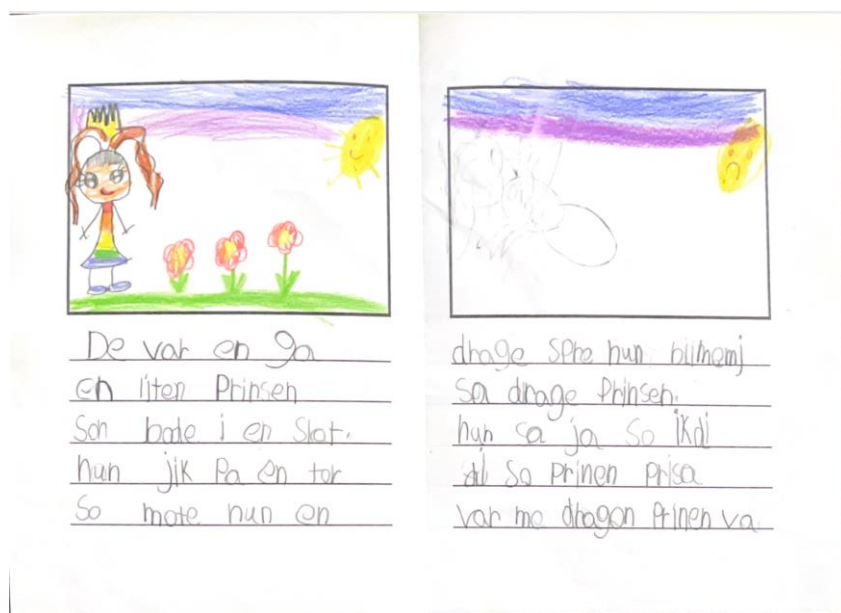 De var en ga
en liten Prinsen
Som bode i en Slot.
hun jik Pa en tor
So mote hun en
drage spre hun bli memj
Sa drage Prinsen.
hun sa ja So ikdi
til So prinen prisa
var me dragon Prinen va